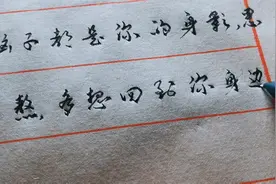 子都是你的身影思
熬多想回到你身边